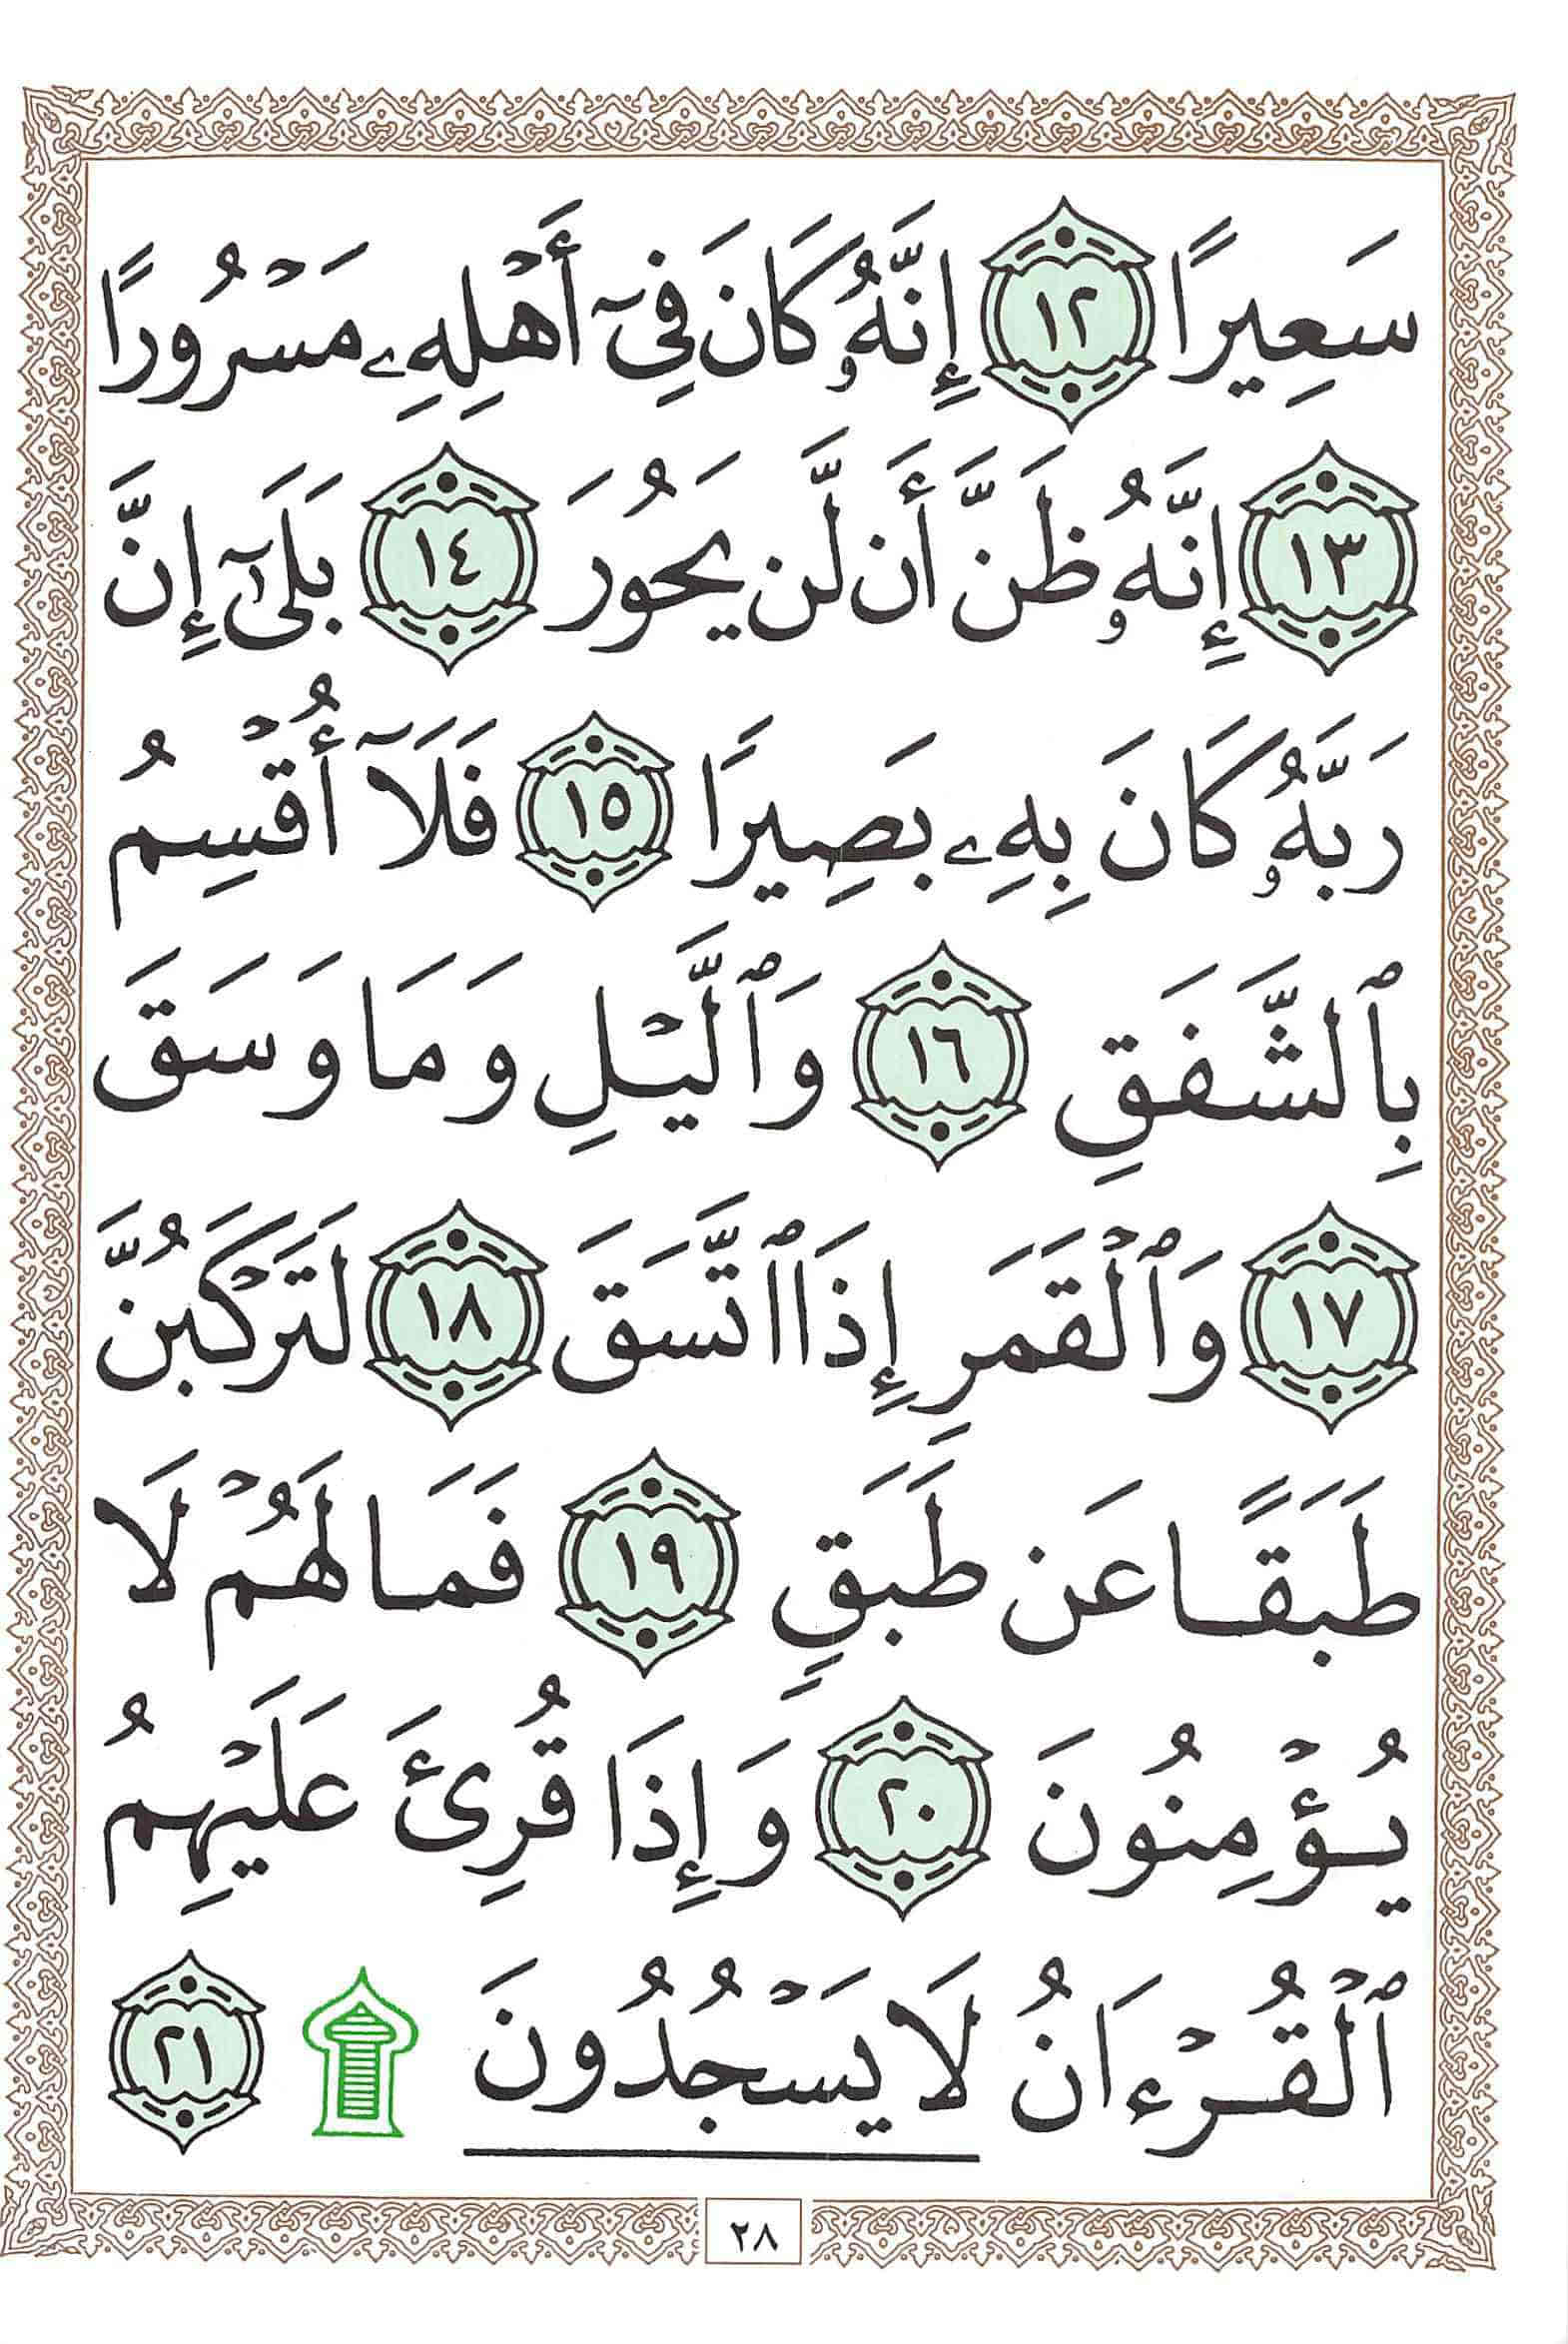 سَعِيرًا ١٢ إِنَّهُۥ كَانَ فِىٓ أَهْلِهِۦ مَسْرُورًا
١٣ إِنَّهُۥ ظَنَّ أَن لَّن يَحُورَ ١٤ بَلَىٰٓ إِنَّ
رَبَّهُۥ كَانَ بِهِۦ بَصِيرًا ١٥ فَلَآ أُقْسِمُ
بِٱلشَّفَقِ ١٦ وَٱلَّيْلِ وَمَا وَسَقَ
١٧ وَٱلْقَمَرِ إِذَا ٱتَّسَقَ ١٨ لَتَرْكَبُنَّ
طَبَقًا عَن طَبَقٍ ١٩ فَمَا لَهُمْ لَا
يُؤْمِنُونَ ٢٠ وَإِذَا قُرِئَ عَلَيْهِمُ
ٱلْقُرْءَانُ لَا يَسْجُدُونَ ۩ ٢١
٢٨